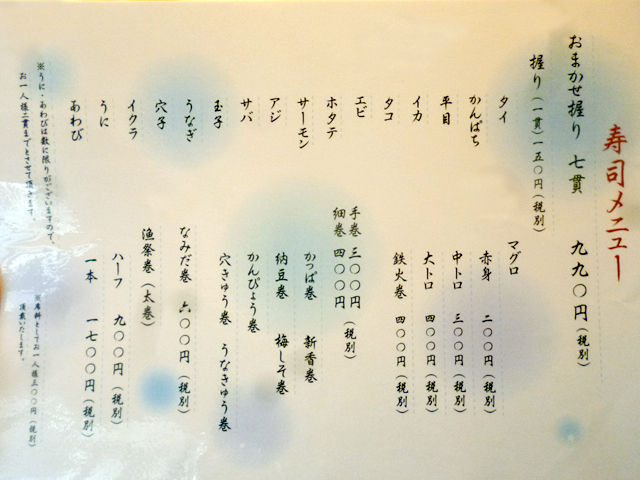 寿司メニュー
おまかせ握り 七貫 九九〇円(税別)
握り(一貫)一五〇円(税別)
タイ
かんぱち
平目
イカ
タコ
エビ
ホタテ
サーモン
アジ
サバ
玉子
うなぎ
穴子
イクラ
うに
あわび
※うに・あわびは数に限りがございますので、
お一人様二貫までとさせて頂きます。
マグロ
赤身 二〇〇円(税別)
中トロ 三〇〇円(税別)
大トロ 四〇〇円(税別)
鉄火巻 四〇〇円(税別)
手巻 三〇〇円
細巻 四〇〇円(税別)
かっぱ巻 新香巻
納豆巻 梅しそ巻
かんぴょう巻
穴きゅう巻 うなきゅう巻
なみだ巻 六〇〇円(税別)
漁祭巻(太巻)
ハーフ 九〇〇円(税別)
一本 一七〇〇円(税別)
※席料としてお一人様三〇〇円(税別)
頂戴いたします。